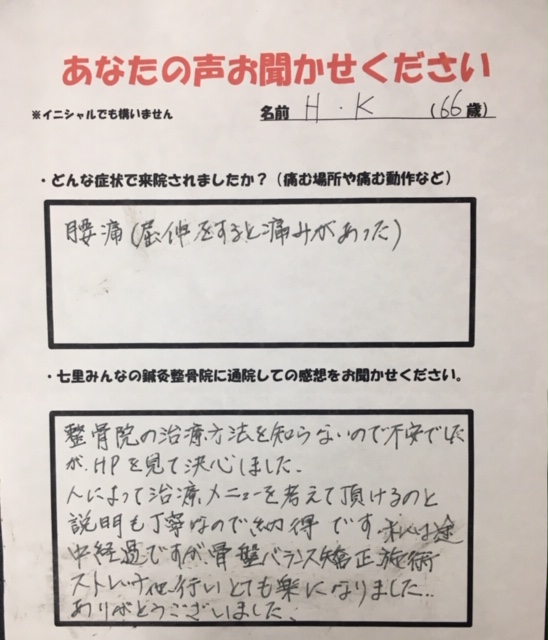 あなたの声お聞かせください
※イニシャルでも構いません 名前 H.K (66歳)
・どんな症状で来院されましたか？(痛む場所や痛む動作など)
腰痛(屈伸をすると痛みがあった)
・七里みんなの鍼灸整骨院に通院しての感想をお聞かせください。
整骨院の治療方法を知らないので不安でした
が、HPを見て決心しました.
人によって治療メニューを考えて頂けるのと
説明も丁寧なので納得です.
中経過ですが、骨盤バランス矯正施術
ストレッチ他行いとても楽になりました..
ありがとうございました.